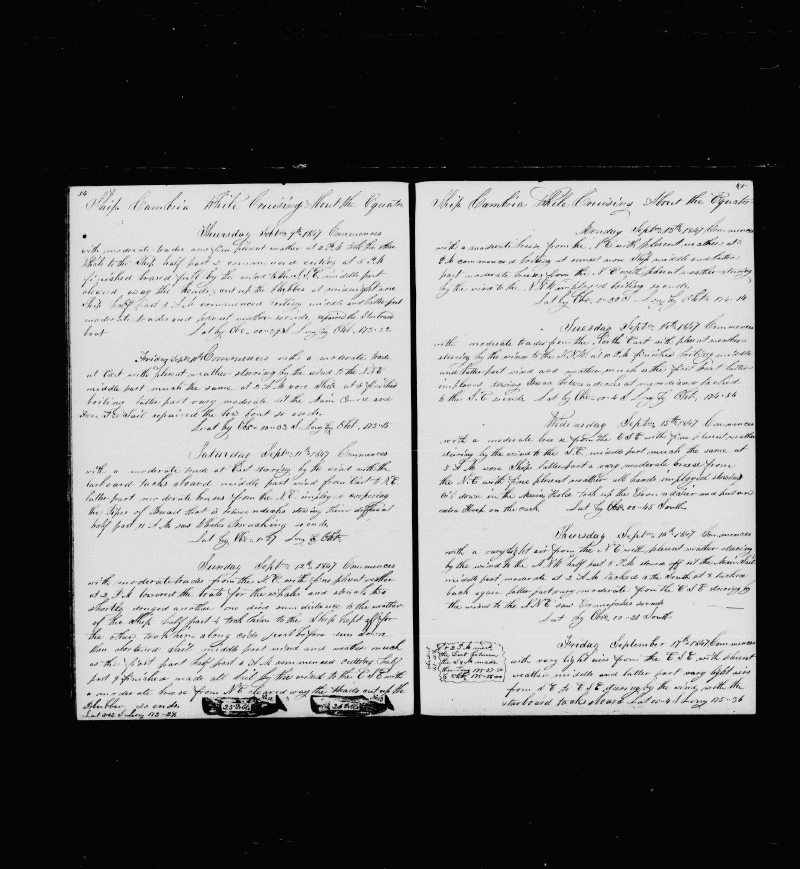 54
Ship Cambria While Cruising About the Equator
Thursday Sept 9th 1847 Commences
with moderate trades and fine plesent weather at 2 P.M. took the other
Whale to the Ship half past 2 commenced cuting at 5 P.M.
finished braced full by the wind to the S.E. middle part
cleared away the Heads, cut up the blubber at midnight wore
Ship half past 4 A.M. commenced boiling middle and latter part
moderate trades and plesent weather so ends repaired the Starboard
boat Lat by Obs 00-29 S Long by Chr. 173-22
Friday Sept 10th Commences with a moderate trade
at East with plesent weather stearing by the wind to the N.E.
middle part much the same at 2 A.M. wore Ship at 3 finished
boiling latter part vary moderate set the Main Course and
sail repaired the boat so ends
Lat by Obs 00-03 S Long by Chr. 173-15
Saturday Sept 11th 1847 Commences
with a moderate trade at East stearing by the wind with the
larboard tacks aboard middle part wind from East to N.E.
latter part moderate breeses from the N.E. employed coopering
the Pipes of Bread that is between decks stowing them
half past 11 A.M. saw Whales Breaching so ends
Lat by Obs Long by Chr
Sunday Sept 12th 1847 Commences
with moderate trades from the S.E. with fine plesent wether
at 2 P.M. lowered the boats for the whales and struck two
shortly another one died sum distance to the weather
of the Ship half past 4 took them to the Ship kept off for
the other took him along side just before sun down
then shortened Sail middle part wind and wether much
as the first part half past 5 A.M. commenced cutting half
part 9 finished made all Sail by the wind to the E.S.E. with
a moderate breese from N.E. cleared away the Heads cut up the
Blubber so ends
Lat 00-2 S Long 173-28
25 Bbls
55
Ship Cambria While Cruising About the Equator
Monday Sept 13th 1847 Commences
with a moderate breese from the N.E. with plesent weather at 3
P.M. commenced boiling at sunset wore Ship middle and latter
part moderate breeses from the N.E. with plesent weather stearing
by the wind to the N.N.W. employed boiling so ends
Lat by Obs 0-30 S Long by Chr 174-14
Tuesday Sept 14th 1847 Commences
with moderate trades from the North East with plesent weather
stearing by the wind to the N.N.W. at 10 P.M. finished boiling middle
and latter part wind and weather much as the first part latter
employed stowing Bread between decks at meridian tacked
to the S.E. so ends Lat by Obs 00-4 S Long by Chr. 174-54
Wednesday Sept 15th 1847 Commences
with a moderate breese from the E.S.E. with fine plesent weather
stearing by the wind to the S.E. middle part much the same at
5 A.M. wore Ship latter part a vary moderate breese from
the N.E. with fine plesent weather all hands employed stowing
Oil down in the Main Hatch took up the Iron and put an
extra Hoop on the cask Lat by Obs 00-45 South
Thursday Sept 16th 1847 Commences
with a vary light air from the N.E. with plesent weather stearing
by the wind to the N.N.W. half past 5 P.M. stood off set the Main Sail
middle part, moderate at 2 A.M. tacked to the South at 8 tacked
back again latter part vary moderate from the E.S.E. stearing by
the wind to the N.N.E. saw so ends
Lat by Obs 00-21 South
Friday September 17th 1847 Commences
with vary light airs from the E.S.E. with plesent
weather middle and latter part vary light airs
from S.E. to E.S.E. stearing by the wind with the
starboard tacks aboard Lat 00-4 S Long 175-36